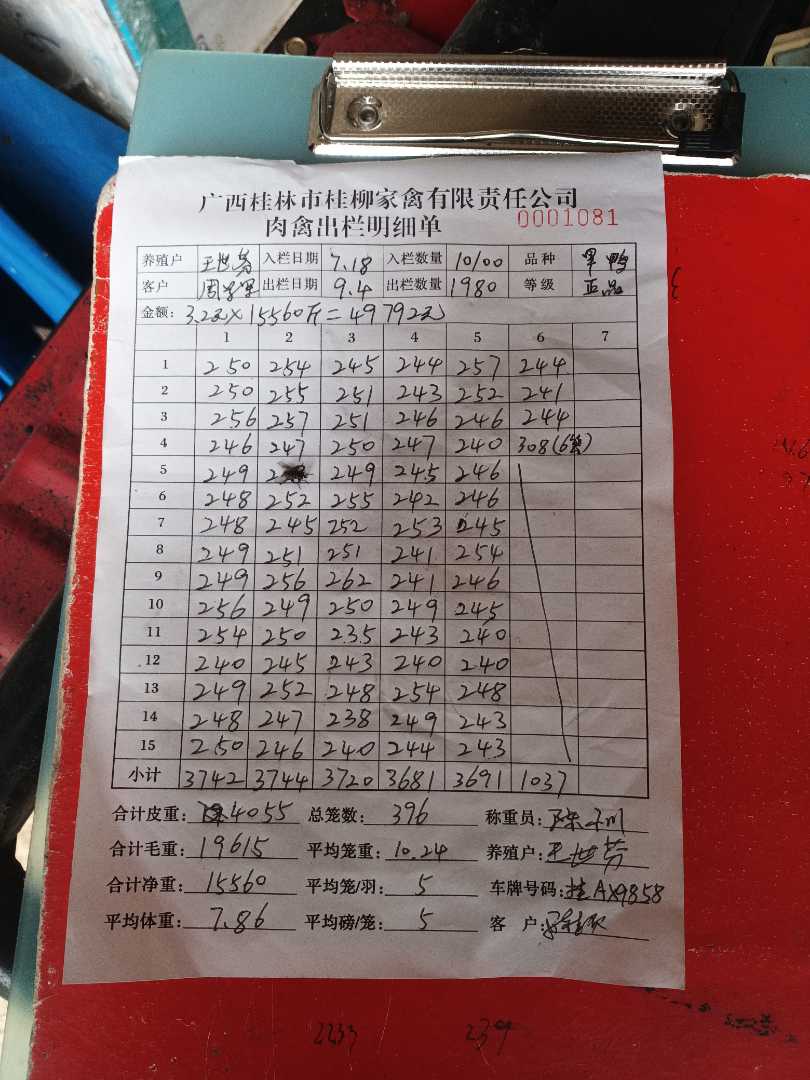 广西桂林市桂柳家禽有限责任公司
肉禽出栏明细单 0001081
养殖户 王世芳 入栏日期 7.18 入栏数量 10100 品种 旱鸭
客户 出栏日期 9.4 出栏数量 1980 等级 正品
金额: 3.2元×15560斤=49792元
1 2 3 4 5 6 7
1 250 254 245 244 257 244
2 250 255 251 243 252 241
3 256 257 251 246 246 244
4 246 247 250 247 240 308(6笼)
5 249 249 245 246
6 248 252 255 242 246
7 248 245 252 253 245
8 249 251 251 241 254
9 249 256 262 241 246
10 256 249 250 249 245
11 254 250 235 243 240
12 240 245 243 240 240
13 249 252 248 254 248
14 248 247 238 249 243
15 250 246 240 244 243
小计 3742 3744 3720 3681 3691 1037
合计皮重: 4055 总笼数: 396 称重员:
合计毛重: 19615 平均笼重: 10.24 养殖户: 王世芳
合计净重: 15560 平均笼/羽: 5 车牌号码: 桂AX9858
平均体重: 7.86 平均磅/笼: 5 客 户:
2233 239